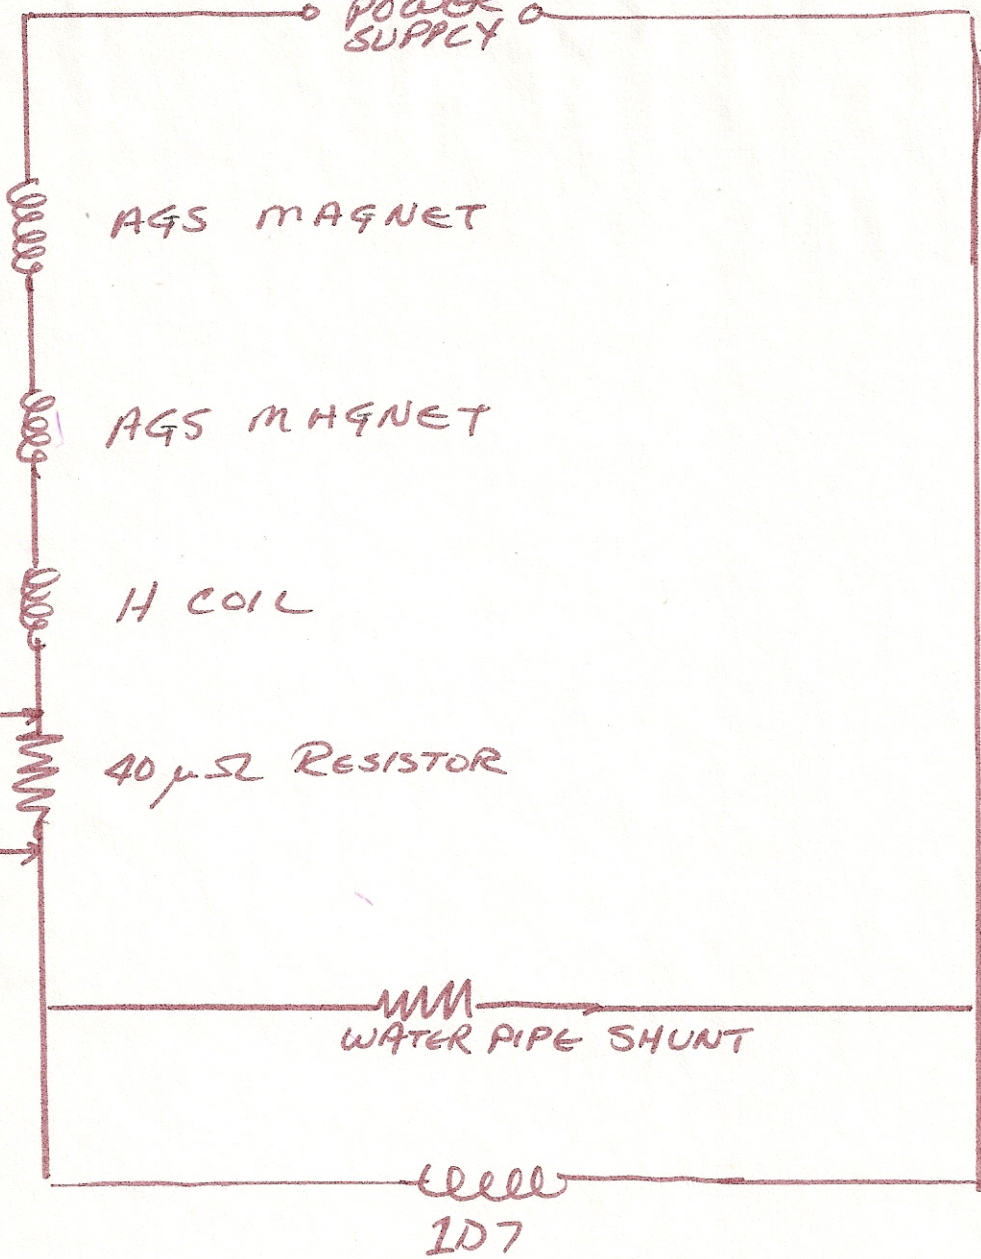 POWER
SUPPLY
AGS MAGNET
AGS MAGNET
H COIL
40 μΩ RESISTOR
WATER PIPE SHUNT
1D7